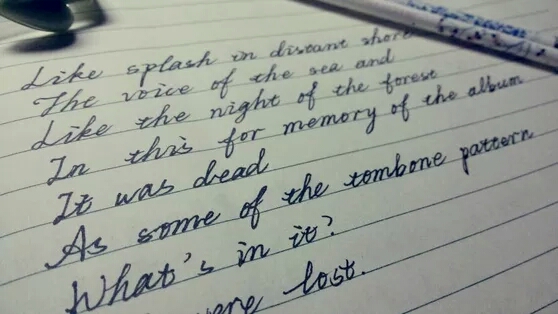 Like splash in distant shore
The voice of the sea and
Like the night of the forest
In this for memory of the album
It was dead
As some of the tombone pattern
What's in it?
were lost.